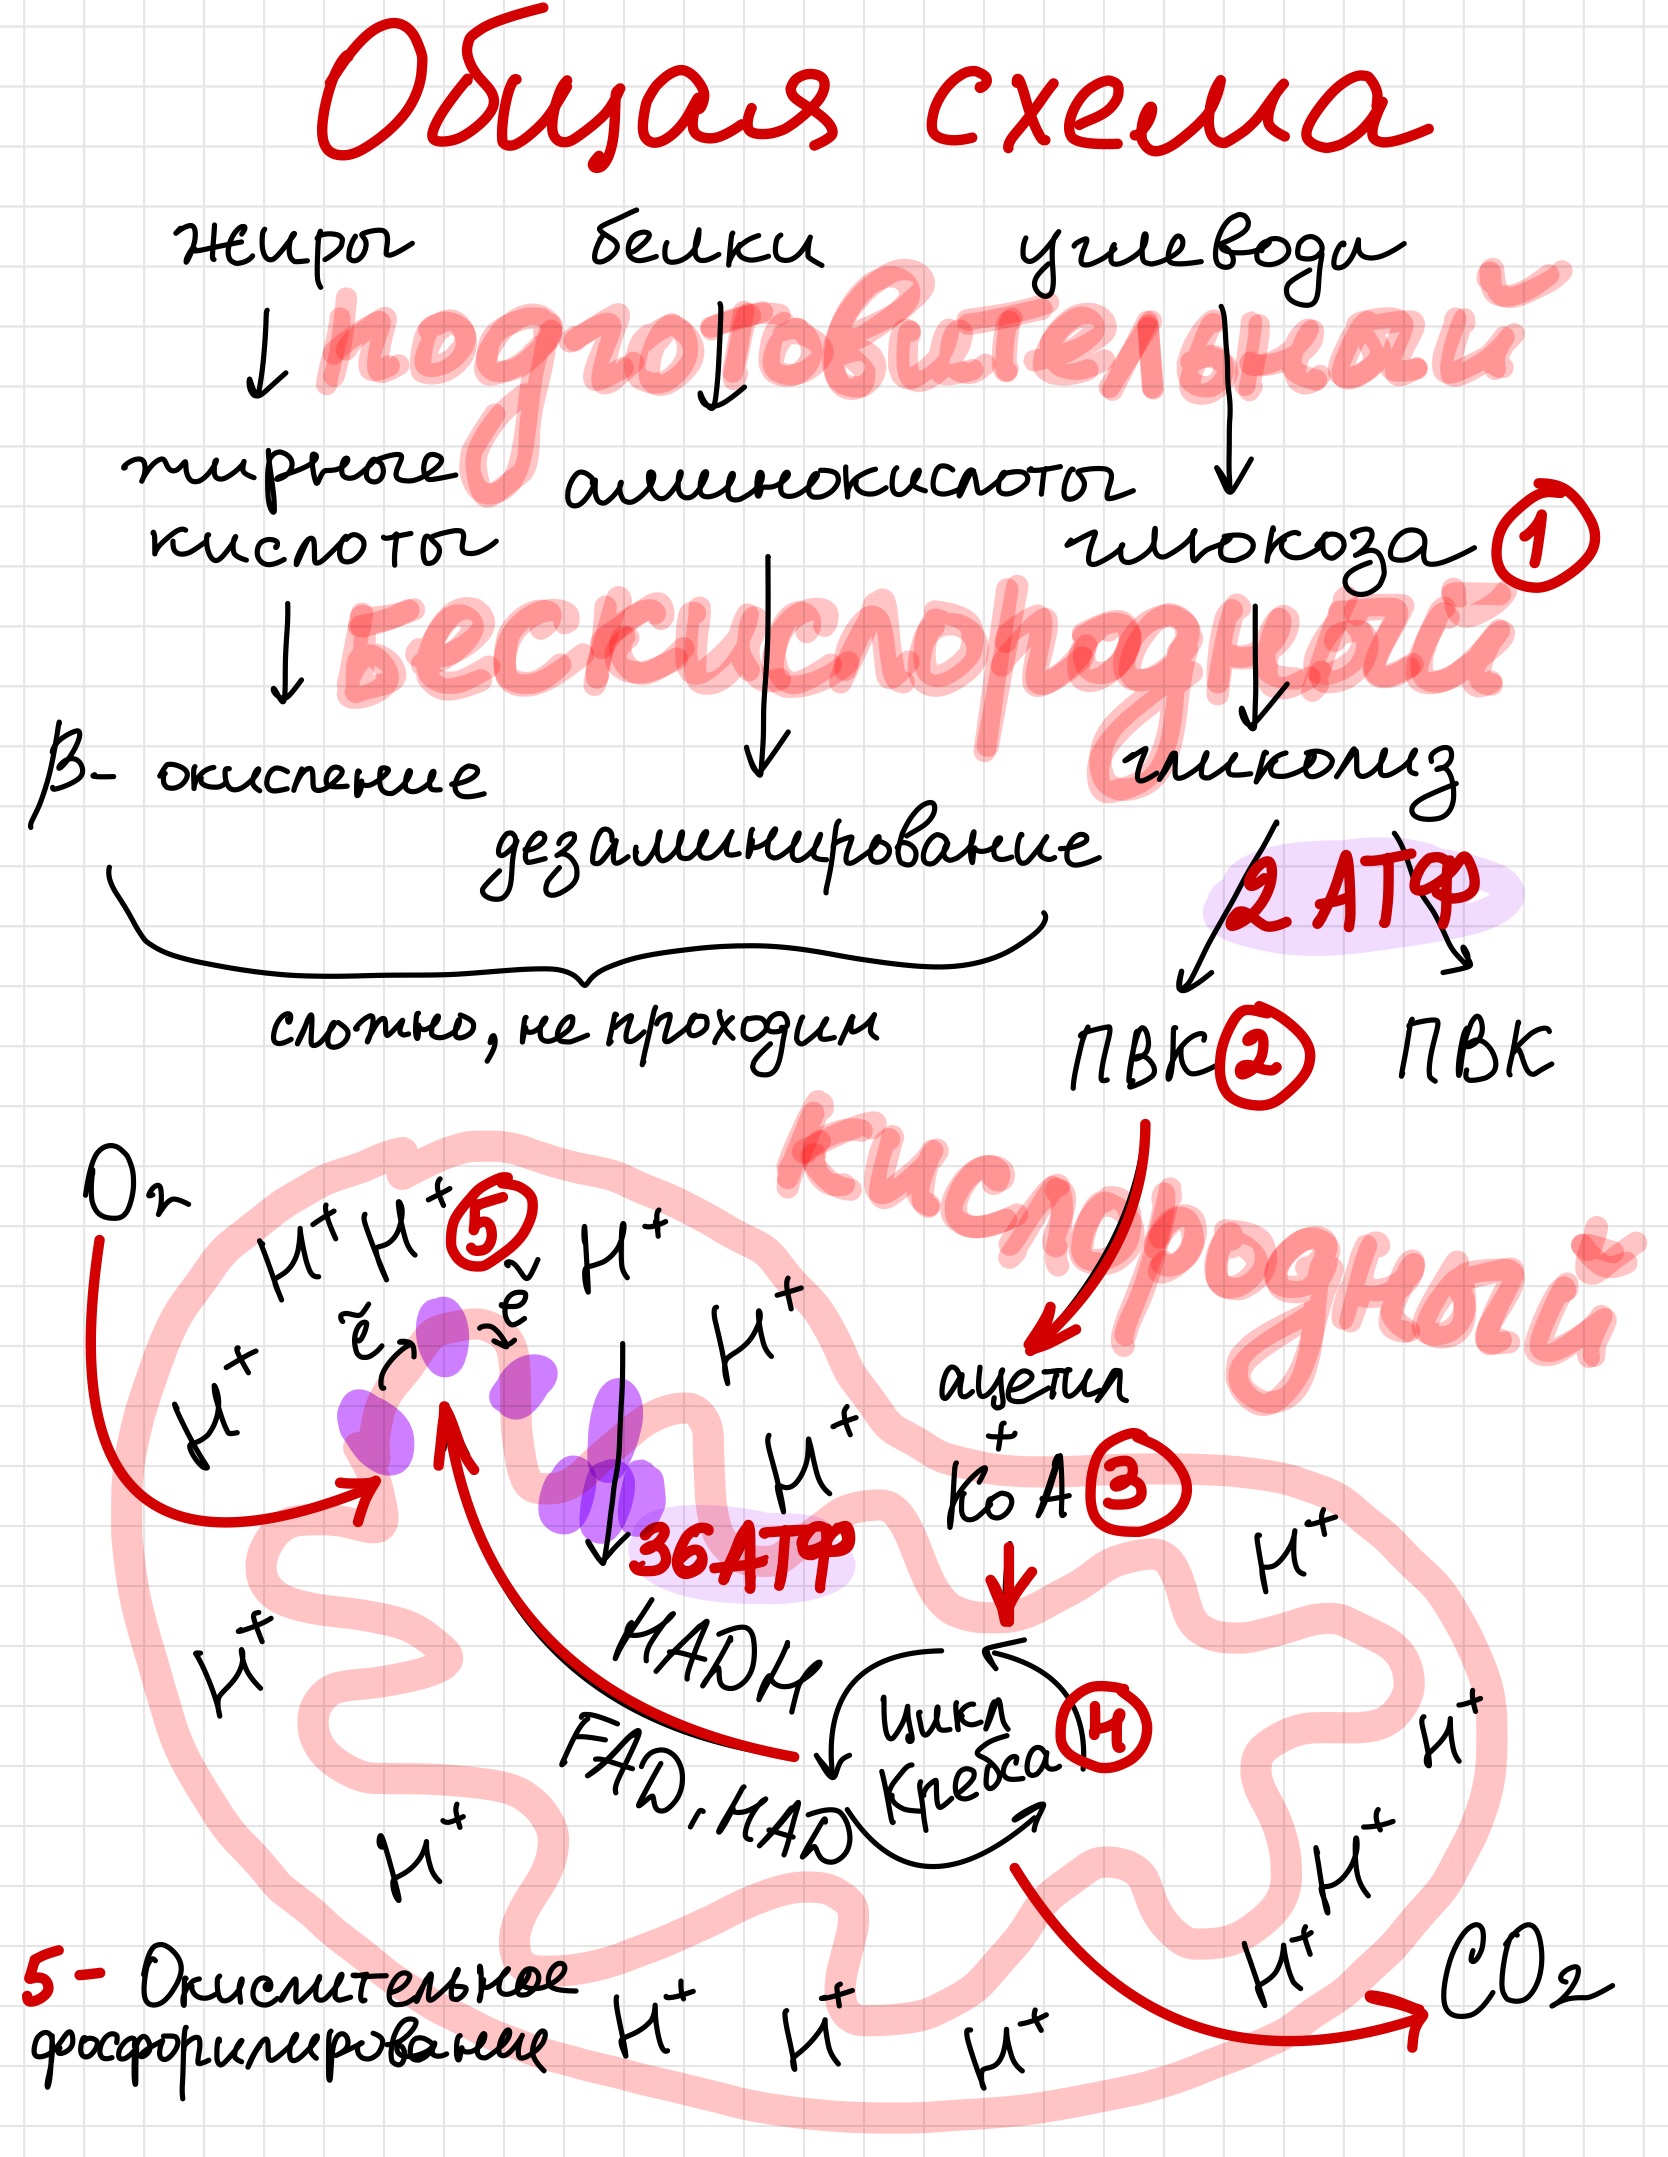 Общая схема
жиры белки углеводы
подготовительный
жирные кислоты
аминокислоты
глюкоза 1
бескислородный
β- окисление
дезаминирование
гликолиз
2 АТФ
сложно, не проходим
ПВК 2 ПВК
кислородный
O₂
H⁺ H⁺ 5 H⁺
ẽ ẽ
H⁺
H⁺
ацетил
+
КоА 3
H⁺
36 АТФ
H⁺
НАДН
H⁺
FAD, НАД
Цикл
Кребса 4
H⁺
H⁺
H⁺
H⁺
CO₂
5- Окислительное
фосфорилирование
H⁺ H⁺ H⁺